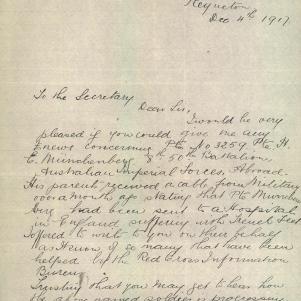 Dec 4th 1917
To the Secretary
Dear Sir,
I would be very
pleased if you could give me any
news concerning Pte No 3259 Pte H.
E. Munchenberg 8th 50th Battalion
Australian Imperial Forces, Abroad.
His parents received a cable from Military
over a month ago stating that Pte Munchen
berg had been sent to a Hospital
in England suffering with Trench Feet
offered to write to you on their behalf
as I know of so many that have been
helped by the Red Cross Information
Bureau.
Trusting that you may get to hear how
the above named soldier is progressing